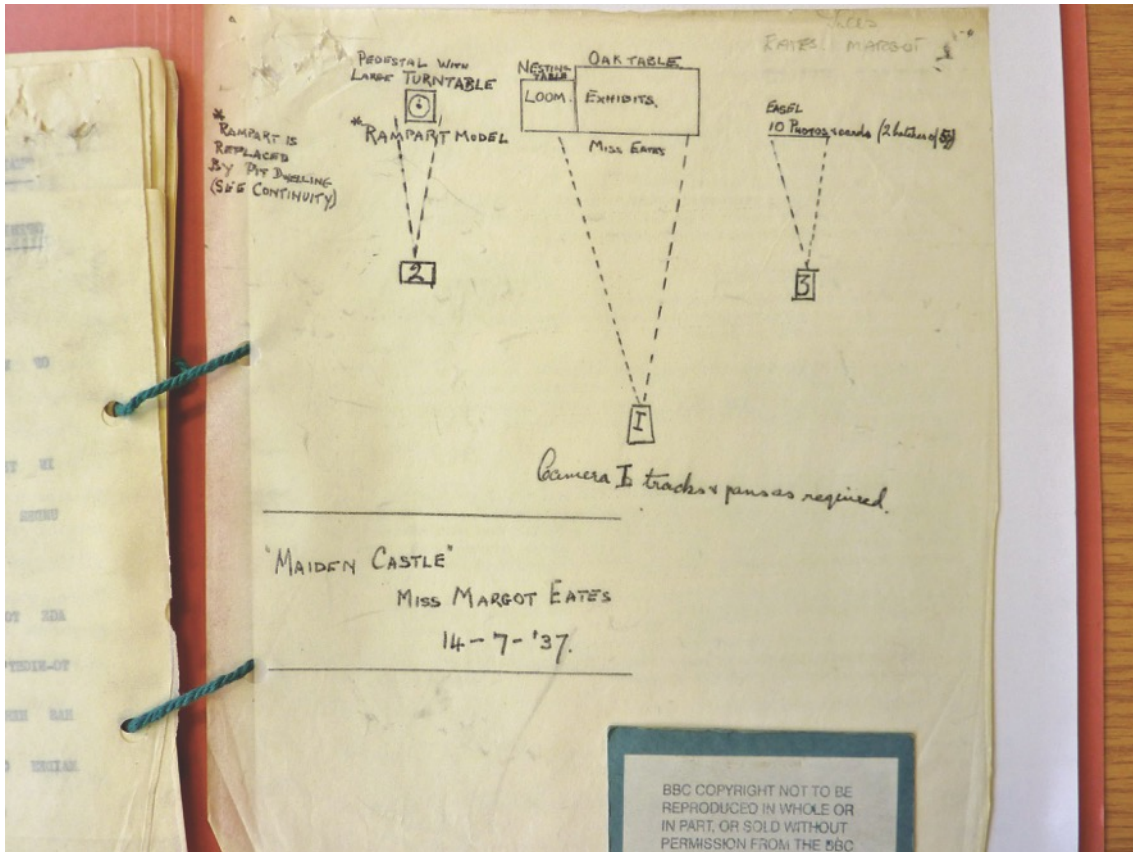 EATES MARGOT
PEDESTAL WITH
LARGE TURNTABLE
* RAMPART MODEL
*
RAMPART IS
REPLACED
BY PIT DWELLING
(SEE CONTINUITY)
2
NESTING
TABLE
LOOM.
OAK TABLE
EXHIBITS.
MISS EATES
EASEL
10 PHOTOS & cards (2 batches of 5)
3
I
Camera I tracks & pans as required.
"MAIDEN CASTLE"
MISS MARGOT EATES
14-7-'37.
BBC COPYRIGHT NOT TO BE
REPRODUCED IN WHOLE OR
IN PART, OR SOLD WITHOUT
PERMISSION FROM THE BBC